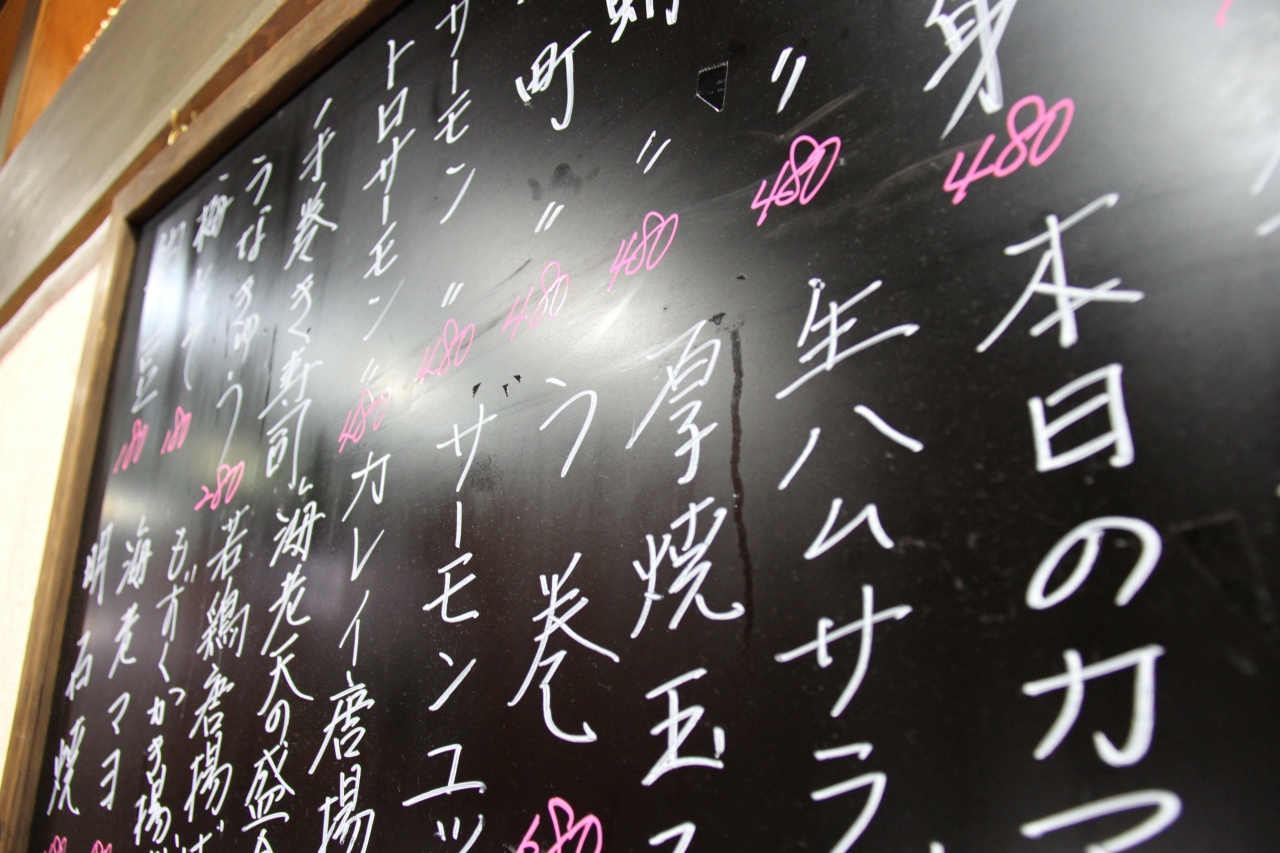 身 480
〃 480
〃 480
町 〃 480
サーモン 〃 480
トロサーモン 〃 480
手巻き寿司
うなきゅう 280
180
180
本日のカマ
生ハムサラ
厚焼玉子
う巻 680
サーモンユッ
カレイ唐揚
海老天の盛合
若鶏唐揚げ
もずくかき揚
海老マヨ
明石焼